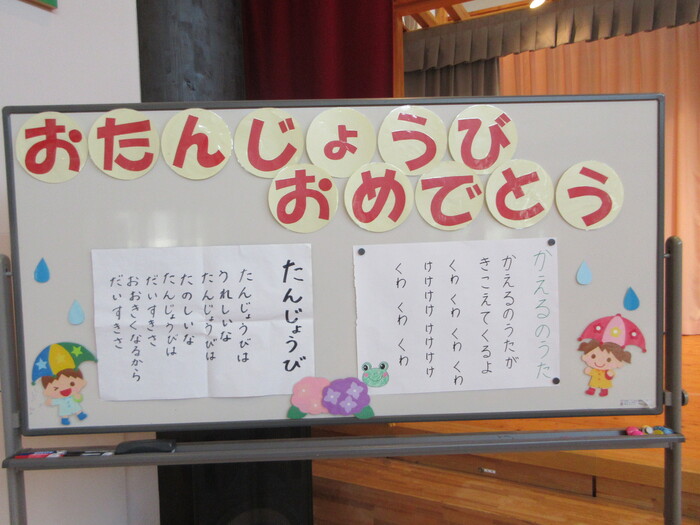 おたんじょうび
おめでとう
かえるのうた
かえるのうたが
きこえてくるよ
くわ くわ くわ くわ
けけけけ けけけけ
くわ くわ くわ
たんじょうび
たんじょうびは
うれしいな
たんじょうびは
たのしいな
たんじょうびは
だいすきさ
おおきくなるから
だいすきさ